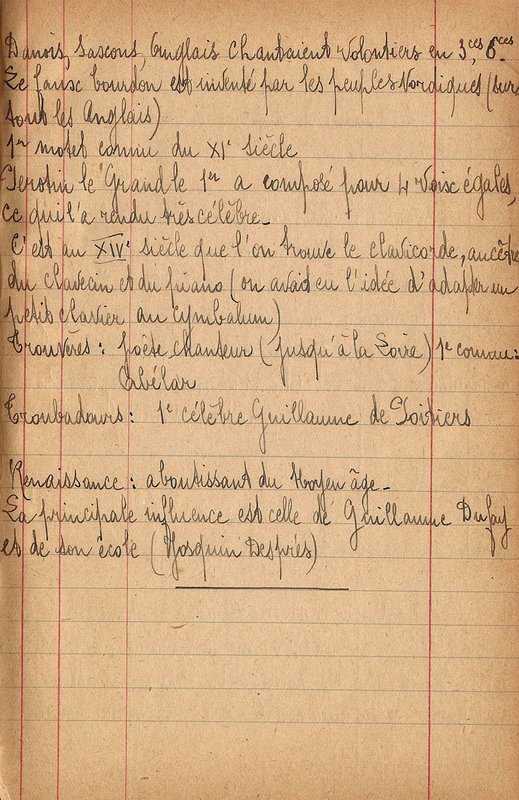 Danois, Saxons, Anglais chantaient volontiers en 3ces, 6ces.
Le faux bourdon est inventé par les peuples Nordiques (sur
tout les Anglais)
1er motet connu du XIe siècle
Perotin le Grand le 1er a composé pour 4 voix égales,
ce qui l'a rendu très célèbre.
C'est au XIVe siècle que l'on trouve le clavicorde, ancêtre
du clavecin et du piano (on avait eu l'idée d'adapter un
petit clavier au cymbalum)
Trouvères : poète chanteur (jusqu'à la Loire) 1er connu :
Abélar
Troubadours : 1er célèbre Guillaume de Poitiers
Renaissance : aboutissant du Moyen âge.
La principale influence est celle de Guillaume Dufay
et de son école (Josquin Després)